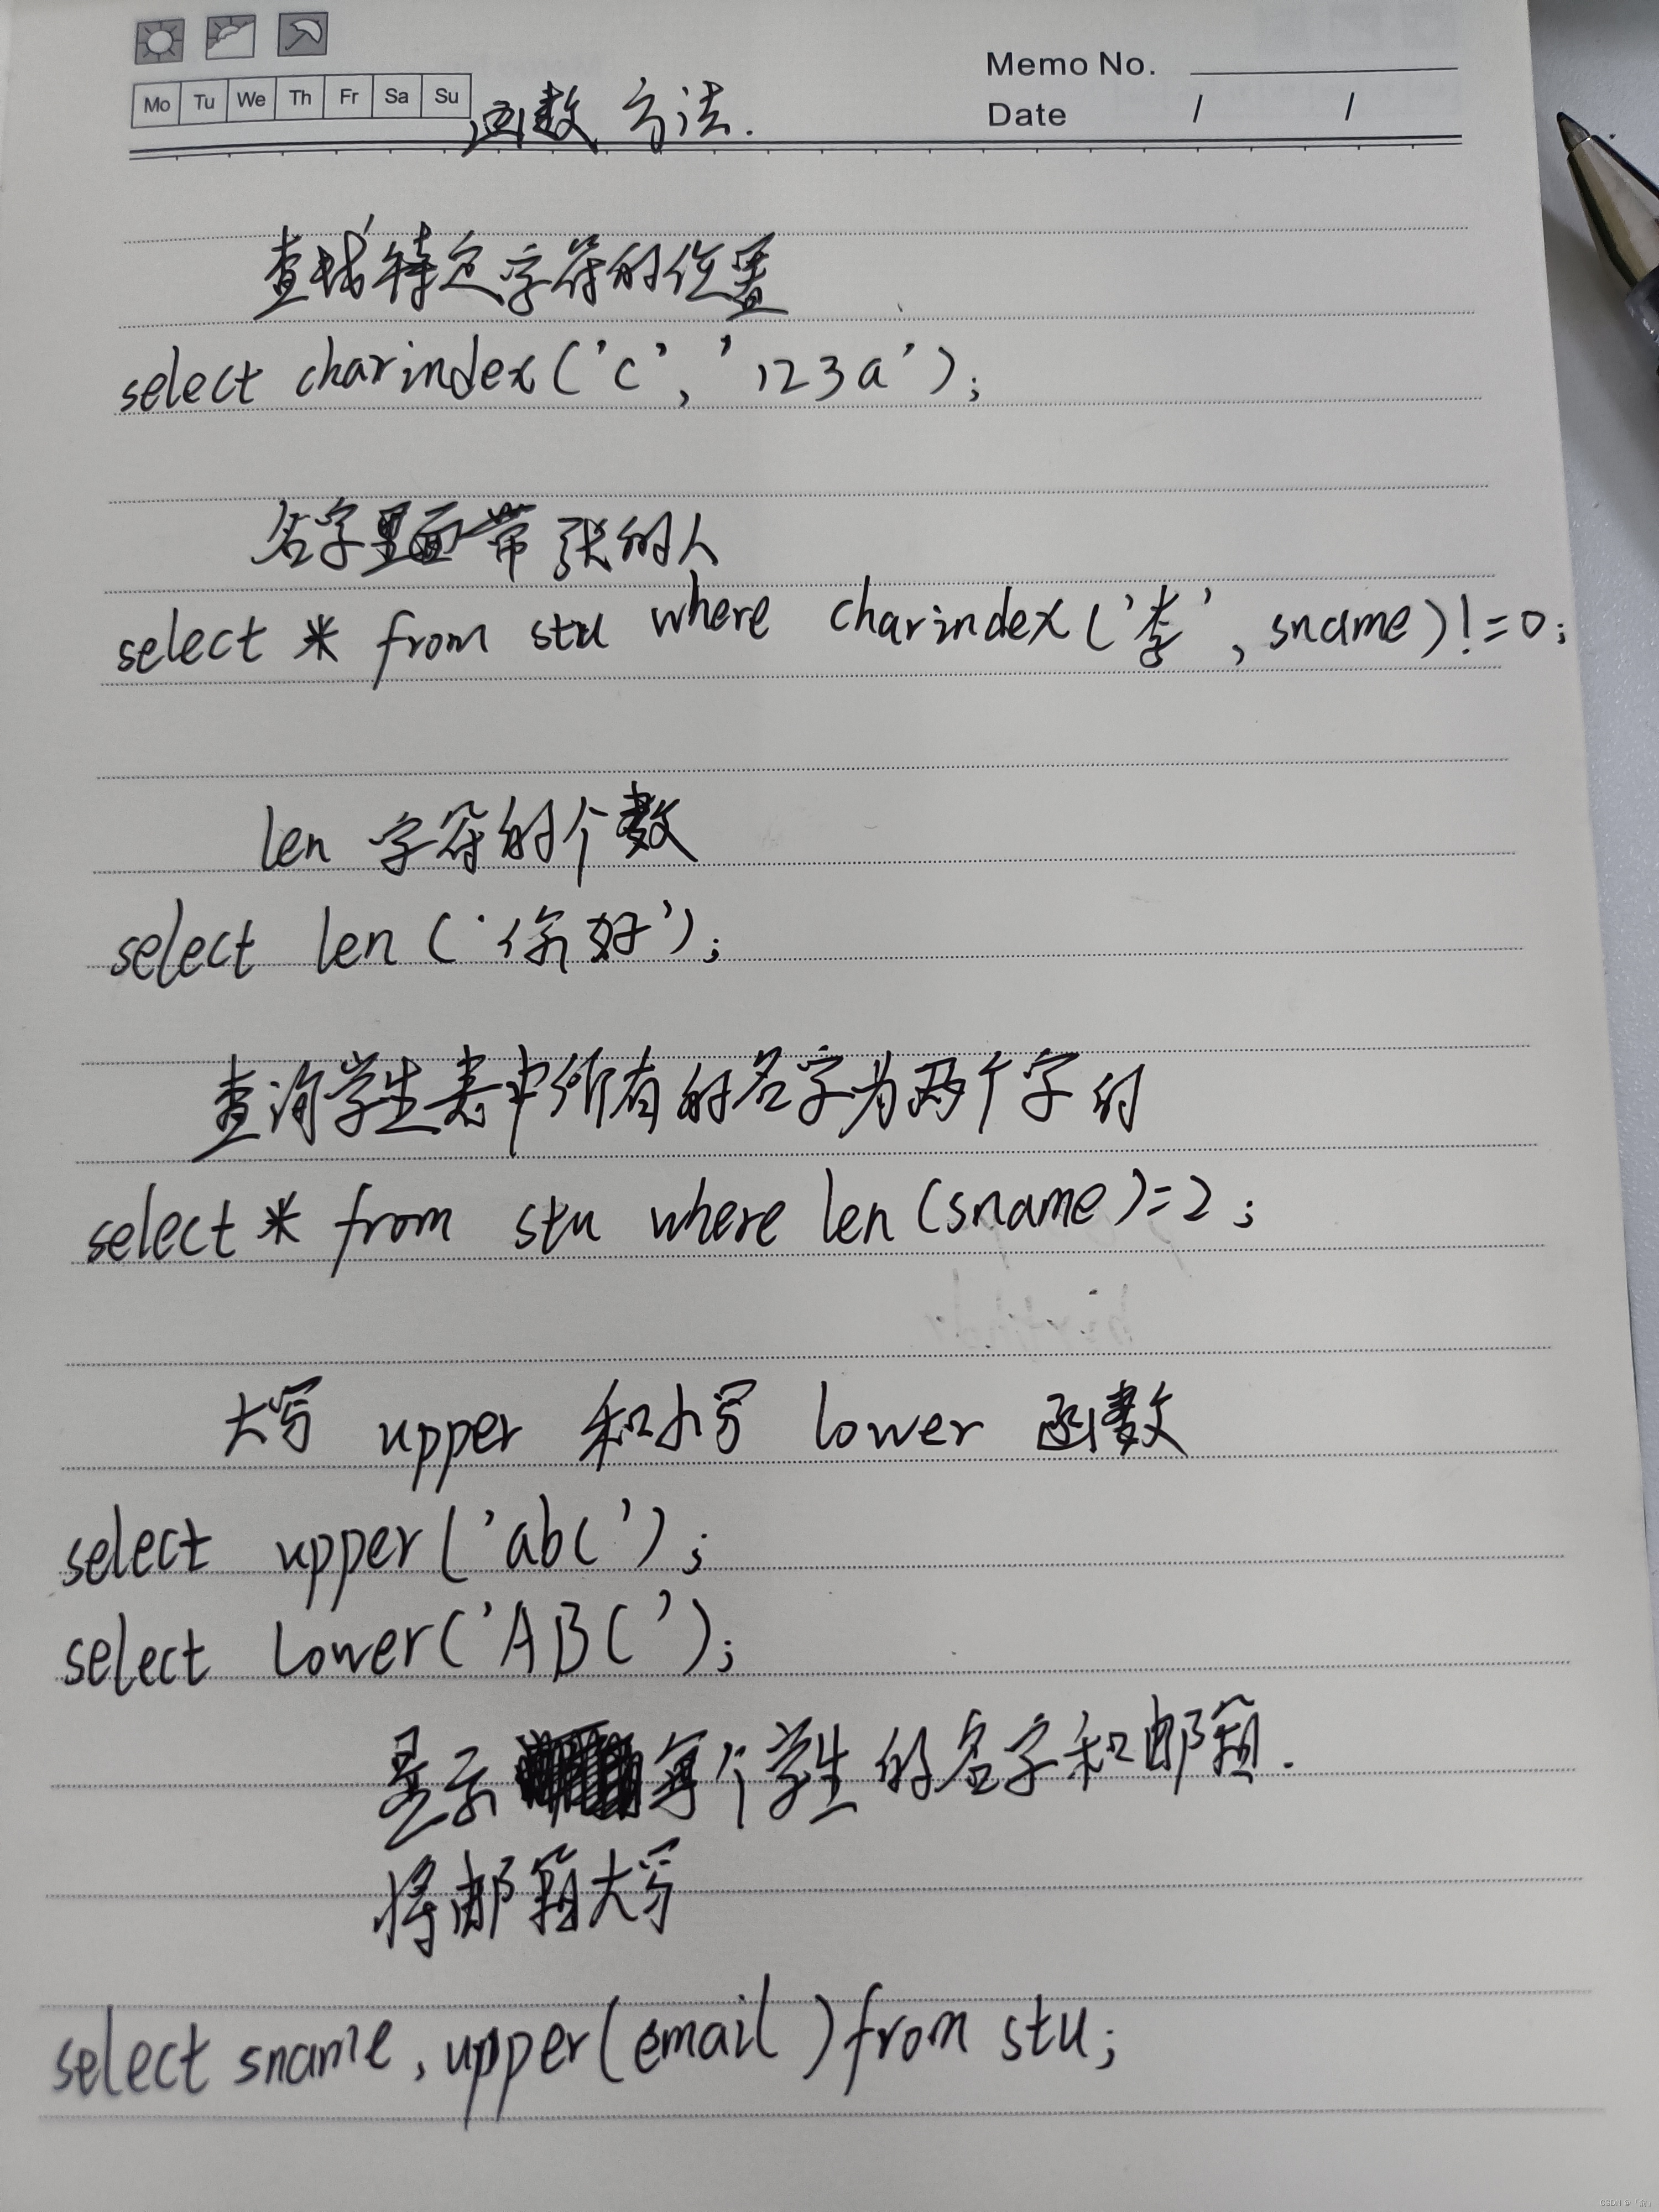 Memo No.
Mo Tu We Th Fr Sa Su
Date / /
函数方法.
查找特定字符的位置
select charindex('c', '123a');
名字里面带张的人
select * from stu where charindex('李', sname)!=0;
len 字符的个数
select len('你好');
查询学生表中所有的名字为两个字的
select * from stu where len(sname)=2;
大写 upper 和小写 lower 函数
select upper('abc');
select lower('ABC');
显示每个学生的名字和邮箱.
将邮箱大写
select sname, upper(email) from stu;